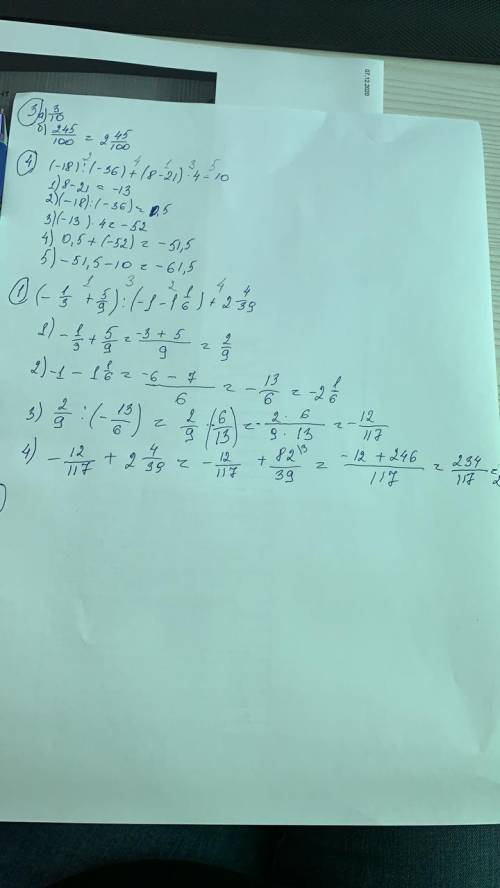 07.12.2020
3 а) 3/10
б) 245/100 = 2 45/100
4 (-18) : (-36) + (8-21) · 4 - 10
1) 8-21 = -13
2) (-18) : (-36) = 0,5
3) (-13) · 4 = -52
4) 0,5 + (-52) = -51,5
5) -51,5 - 10 = -61,5
1 (-1/3 + 5/9) : (-1 - 1 1/6) + 2 4/39
1) -1/3 + 5/9 = (-3 + 5)/9 = 2/9
2) -1 - 1 1/6 = (-6 - 7)/6 = -13/6 = -2 1/6
3) 2/9 : (-13/6) = 2/9 · (6/13) = -(2 · 6)/(9 · 13) = -12/117
4) -12/117 + 2 4/39 = -12/117 + 82/39 \3 = (-12 + 246)/117 = 234/117 = 2